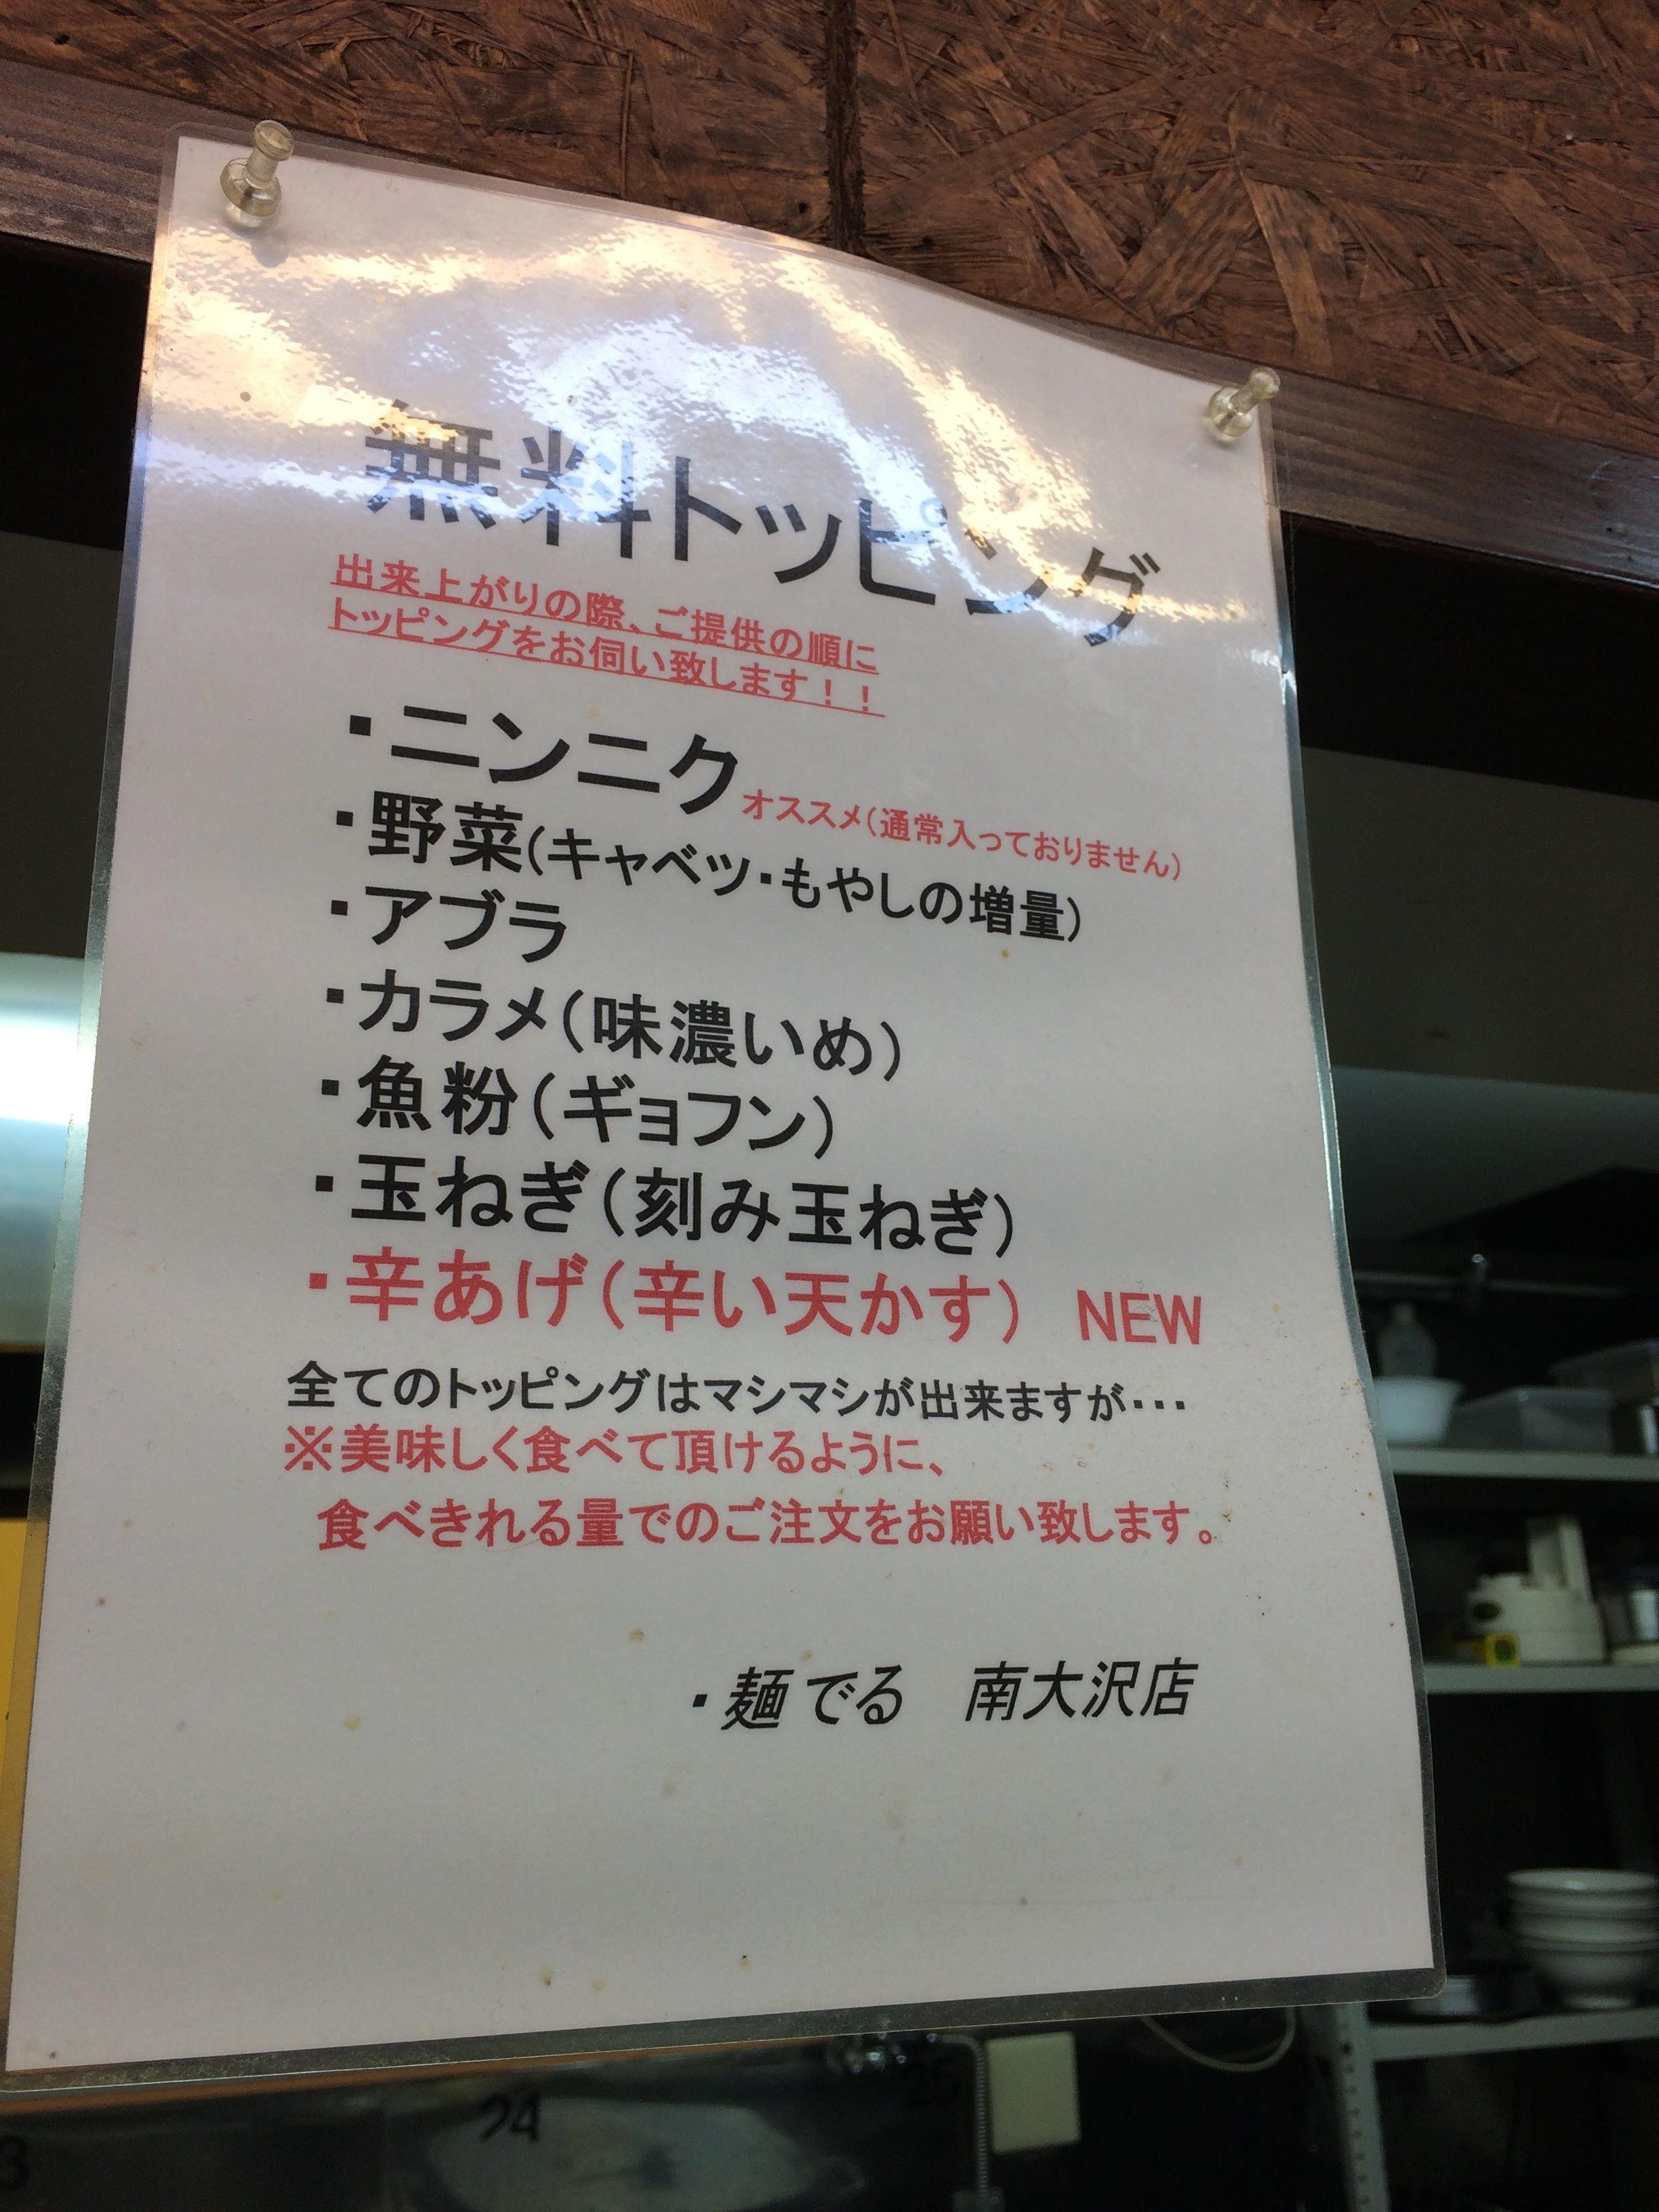 無料トッピング
出来上がりの際、ご提供の順に
トッピングをお伺い致します！！
・ニンニクオススメ(通常入っておりません)
・野菜(キャベツ・もやしの増量)
・アブラ
・カラメ(味濃いめ)
・魚粉(ギョフン)
・玉ねぎ(刻み玉ねぎ)
・辛あげ(辛い天かす) NEW
全てのトッピングはマシマシが出来ますが・・・
※美味しく食べて頂けるように、
食べきれる量でのご注文をお願い致します。
・麺でる 南大沢店
24